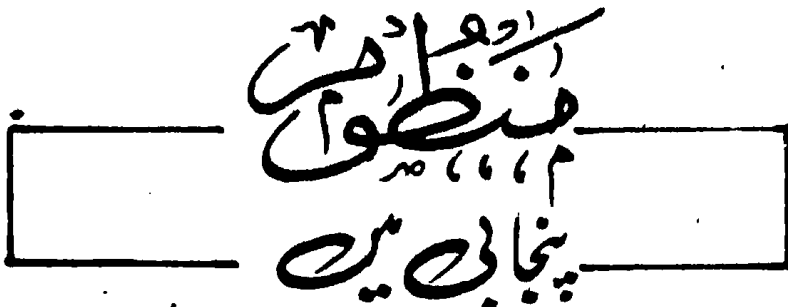 منظوم
پنجابی میں